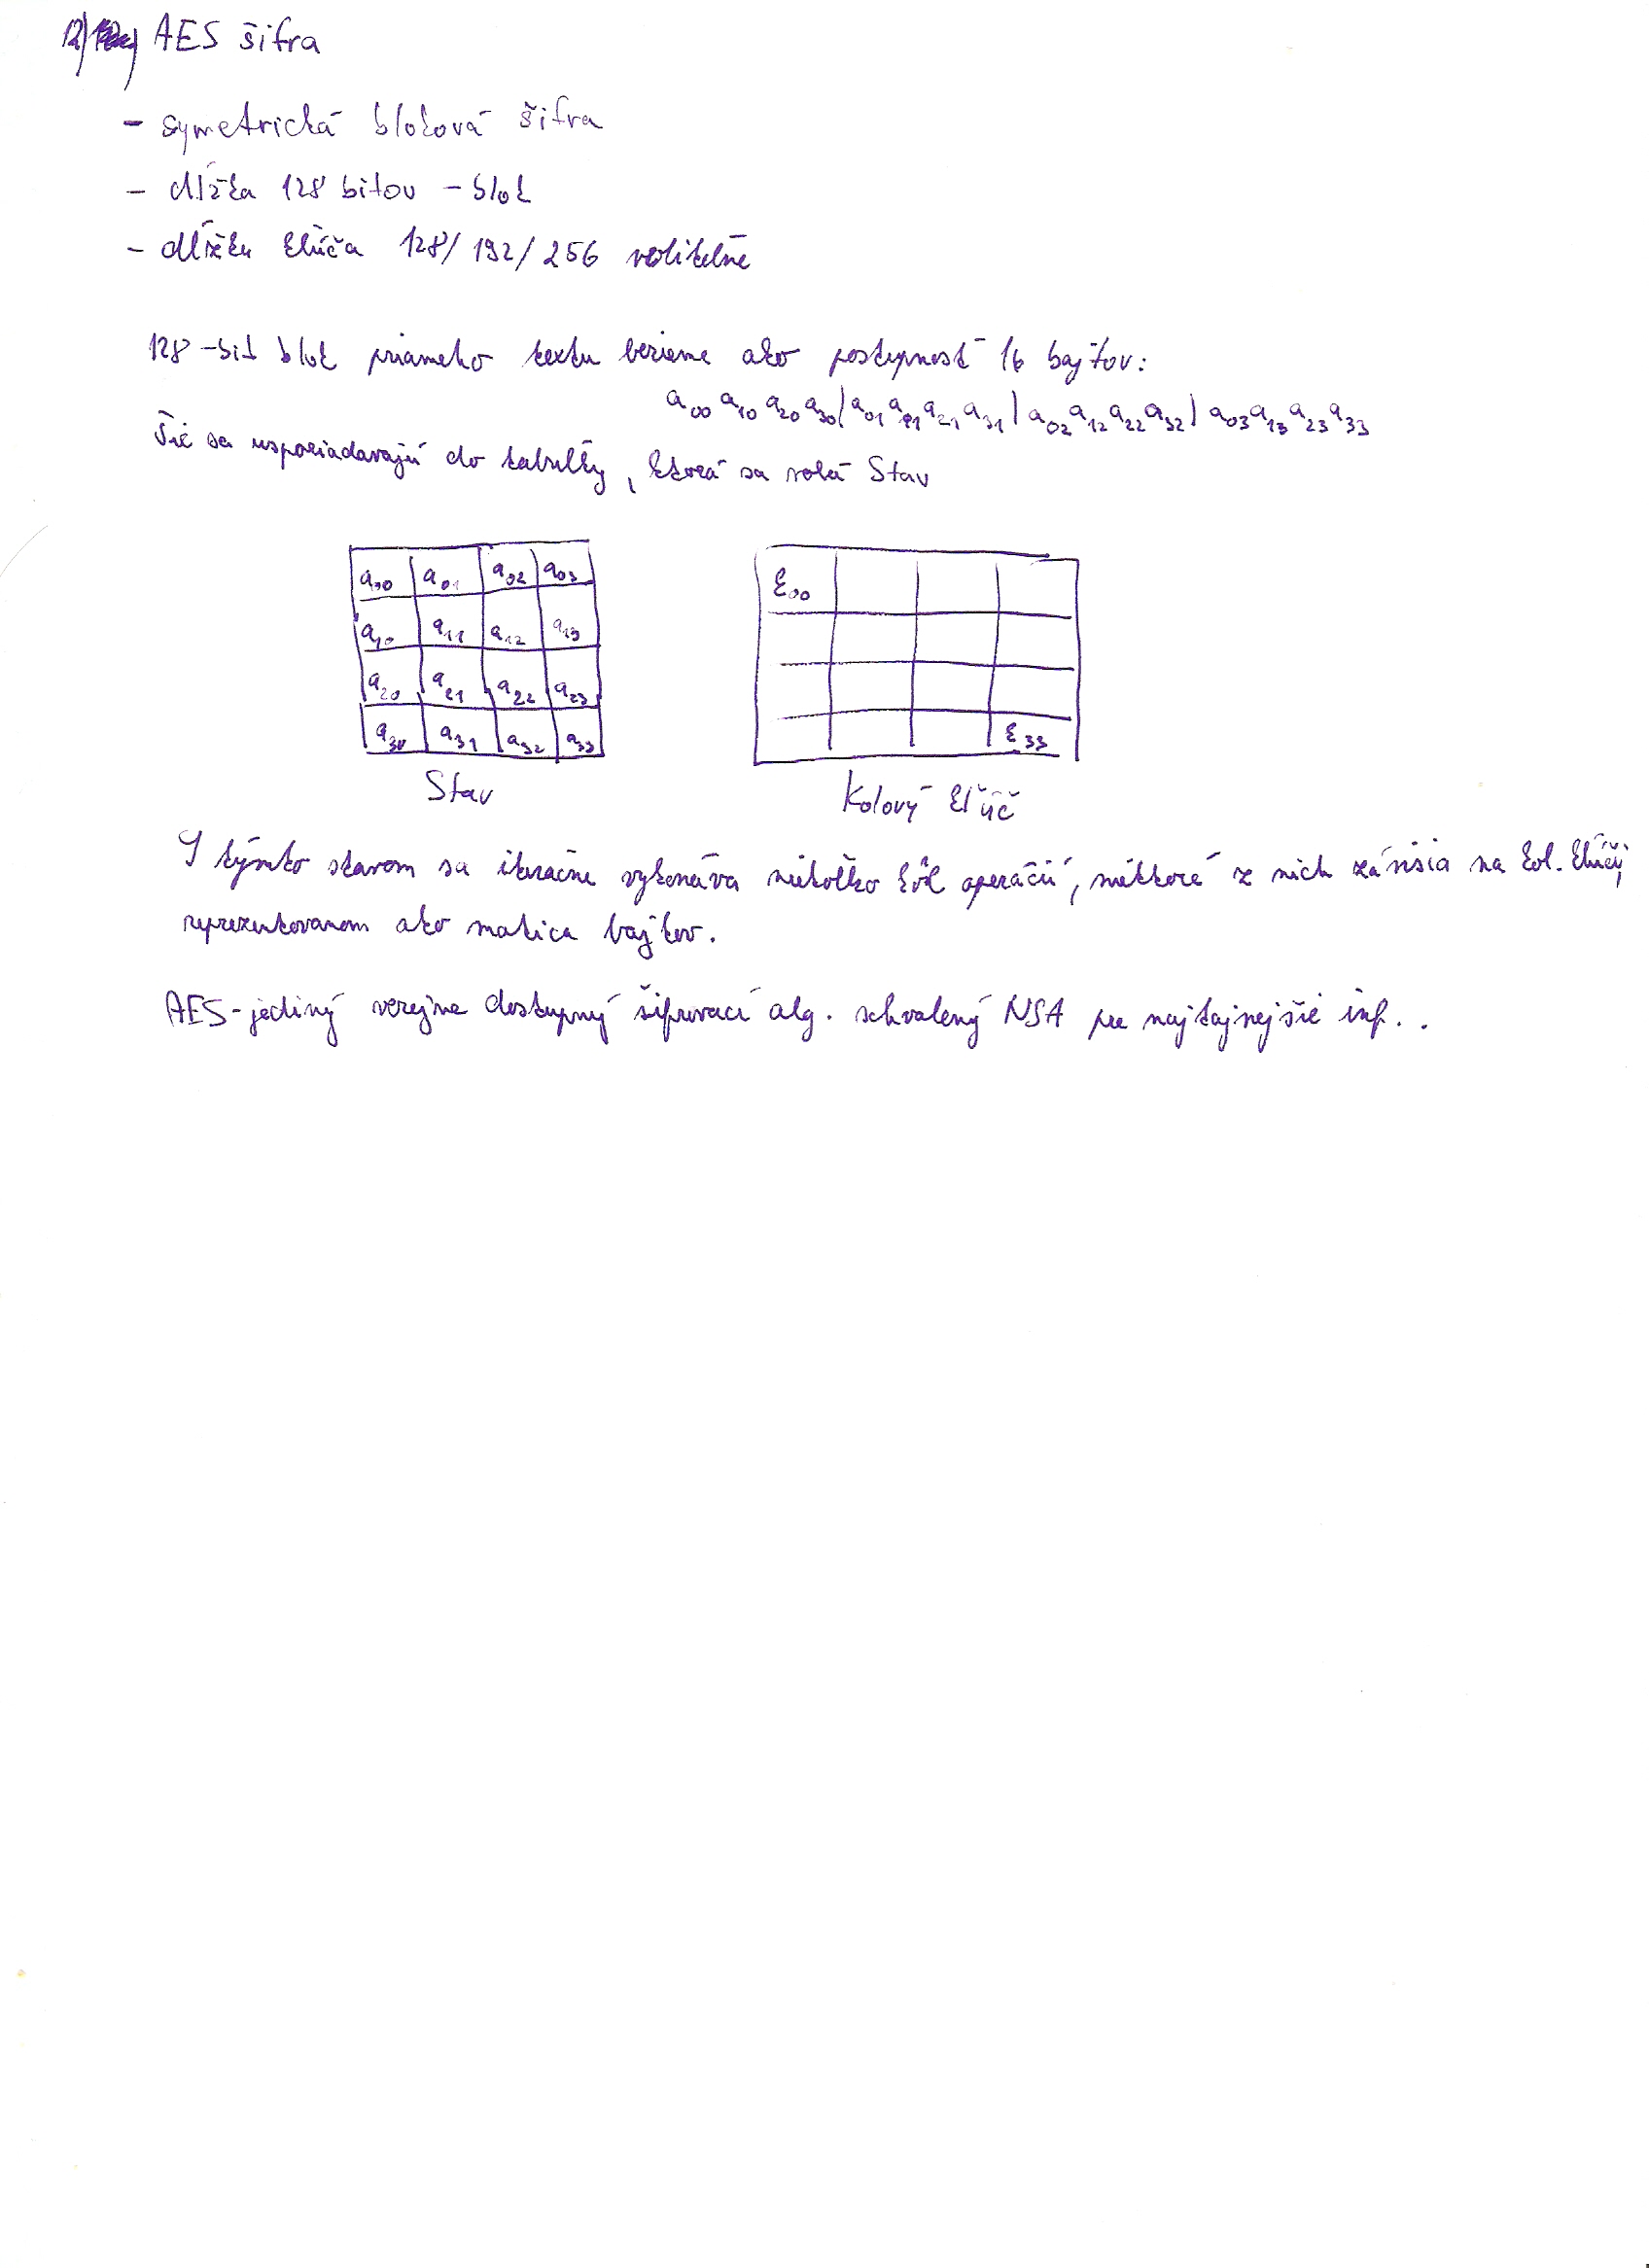 12) AES šifra
- symetrická bloková šifra
- dĺžka 128 bitov - blok
- dĺžku kľúča 128/192/256 voliteľne
128-bit blok priameho textu berieme ako postupnosť 16 bajtov:
a00 a10 a20 a30 | a01 a11 a21 a31 | a02 a12 a22 a32 | a03 a13 a23 a33
Tie sa usporiadavajú do tabuľky, ktorá sa volá Stav
a00 a01 a02 a03
a10 a11 a12 a13
a20 a21 a22 a23
a30 a31 a32 a33
Stav
k00
k33
Kolový kľúč
S týmto stavom sa iteračne vykonáva niekoľko kôl operácií, niektoré z nich závisia na kol. kľúči
reprezentovanom ako matica bajtov.
AES - jediný verejne dostupný šifrovací alg. schválený NSA pre najtajnejšie inf..